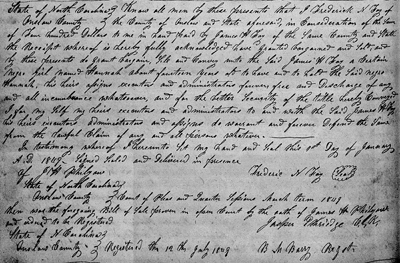 State of North Carolina } Know all men by these presents that I Frederick N Foy of
Onslow County } the County of Onslow and State aforesaid, in Consideration of the Sum
of Four hundred Dollars to me in hand paid by James H Foy of the Same County and State
the Receipt whereof is hereby fully acknowledged have granted bargained and Sold, and
by these presents do grant bargain, Sell and Convey unto the Said James H Foy a Certain
Negro Girl named Hannah about fourteen years old to have and to hold the Said negro
Hannah, to his heirs assigns executors and administrators forever free and Discharge of any
and all incumbrance whatsoever, and for the better Security of the title hereby Conveyed
I for my Self my heirs executors and administrators to and with the Said James H Foy
his heirs executors administrators and assigns do warrant and forever Defend the Same
from the lawful Claim of any and all persons whatever.
In testimony whereof I hereunto Set my hand and Seal this 9th day of January
A.D. 1849 Signed Seald and delivered in presence
of Frederic N Foy (Seal)
State of North Carolina }
Onslow County } Court of Pleas and Quarter Sessions March term 1849
then was the foregoing Bill of Sale proven in open Court by the oath of James H
and ordered to be Registered Jasper Etheridge Clk
State of N Carolina }
Onslow County } Registered the 12th July 1849 B M Barry Regst.